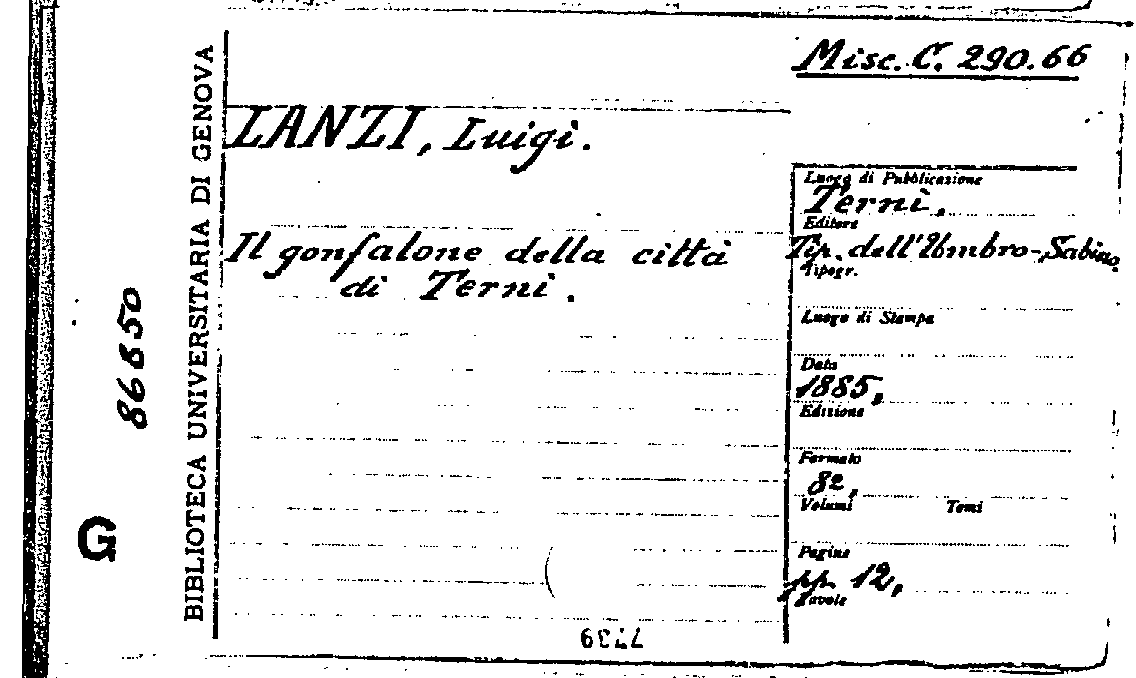 Misc. C. 290.66
LANZI, Luigi.
Il gonfalone della città
di Terni.
Luogo di Pubblicazione
Terni,
Editore
Tip. dell'Umbro-Sabino.
Tipogr.
Luogo di Stampa
Data
1885,
Edizione
Formato
8º,
Volumi Tomi
Pagine
pp. 12,
Tavole
BIBLIOTECA UNIVERSITARIA DI GENOVA
86650
G
7739